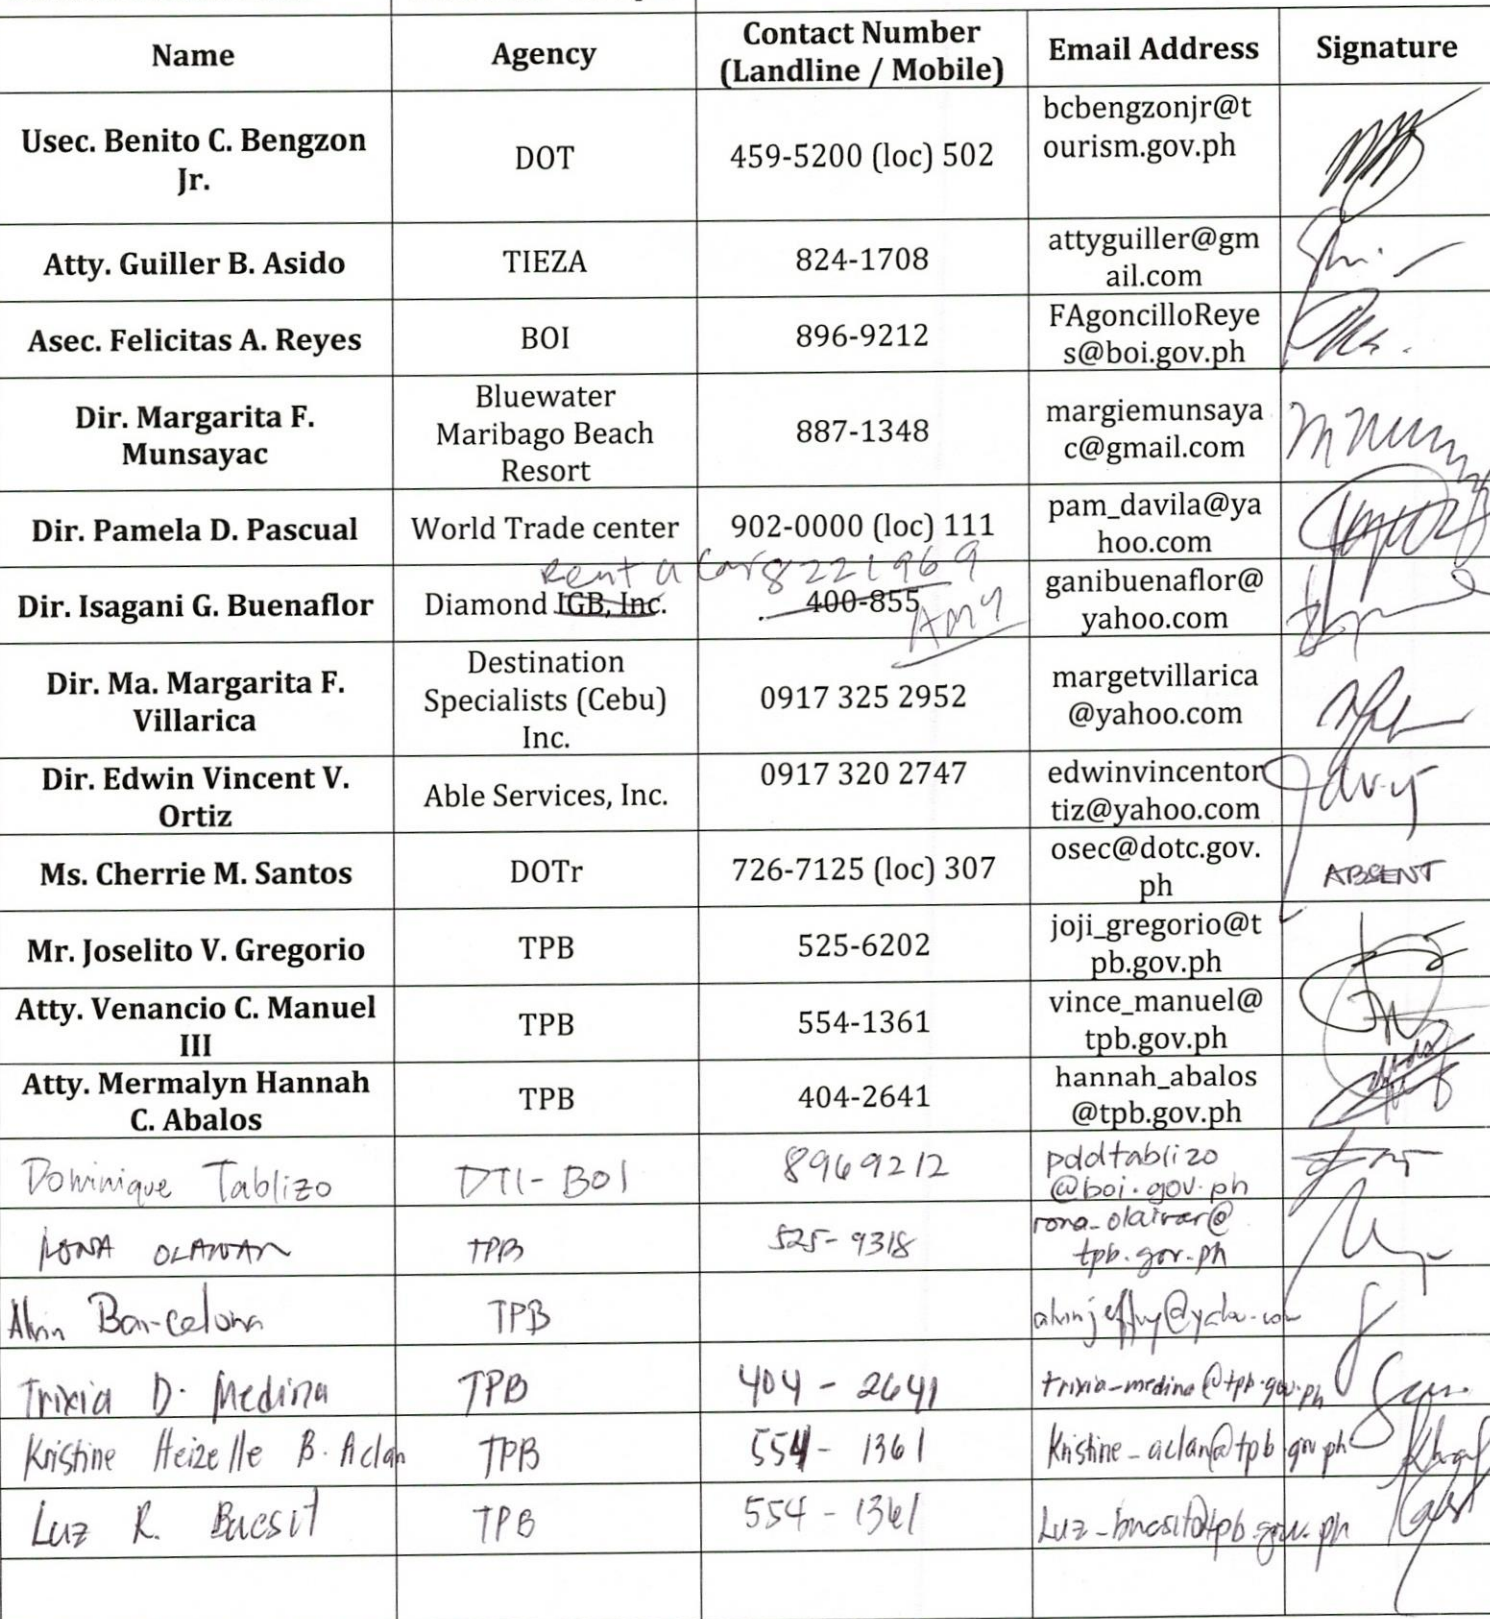 Name Agency Contact Number (Landline / Mobile) Email Address Signature
Usec. Benito C. Bengzon Jr. DOT 459-5200 (loc) 502 bcbengzonjr@tourism.gov.ph
Atty. Guiller B. Asido TIEZA 824-1708 attyguiller@gmail.com
Asec. Felicitas A. Reyes BOI 896-9212 FAgoncilloReyes@boi.gov.ph
Dir. Margarita F. Munsayac Bluewater Maribago Beach Resort 887-1348 margiemunsayac@gmail.com
Dir. Pamela D. Pascual World Trade center 902-0000 (loc) 111 pam_davila@yahoo.com
Rent a Car 8221969
Dir. Isagani G. Buenaflor Diamond IGB, Inc. 400-855 ganibuenaflor@yahoo.com
AMY
Dir. Ma. Margarita F. Villarica Destination Specialists (Cebu) Inc. 0917 325 2952 margetvillarica@yahoo.com
Dir. Edwin Vincent V. Ortiz Able Services, Inc. 0917 320 2747 edwinvincentortiz@yahoo.com
Ms. Cherrie M. Santos DOTr 726-7125 (loc) 307 osec@dotc.gov.ph ABSENT
Mr. Joselito V. Gregorio TPB 525-6202 joji_gregorio@tpb.gov.ph
Atty. Venancio C. Manuel III TPB 554-1361 vince_manuel@tpb.gov.ph
Atty. Mermalyn Hannah C. Abalos TPB 404-2641 hannah_abalos@tpb.gov.ph
Dominique Tablizo DTI-BOI 8969212 pddtablizo@boi.gov.ph
TPB 525-9318 tpb.gov.ph
Alvin Barcelona TPB
Trixia D. Medina TPB 404-2641 trixia_medina@tpb.gov.ph
Kristine Heizelle B. Aclan TPB 554-1361 Kristine_aclan@tpb.gov.ph
Luz R. Bucsit TPB 554-1361 Luz_bucsit@tpb.gov.ph